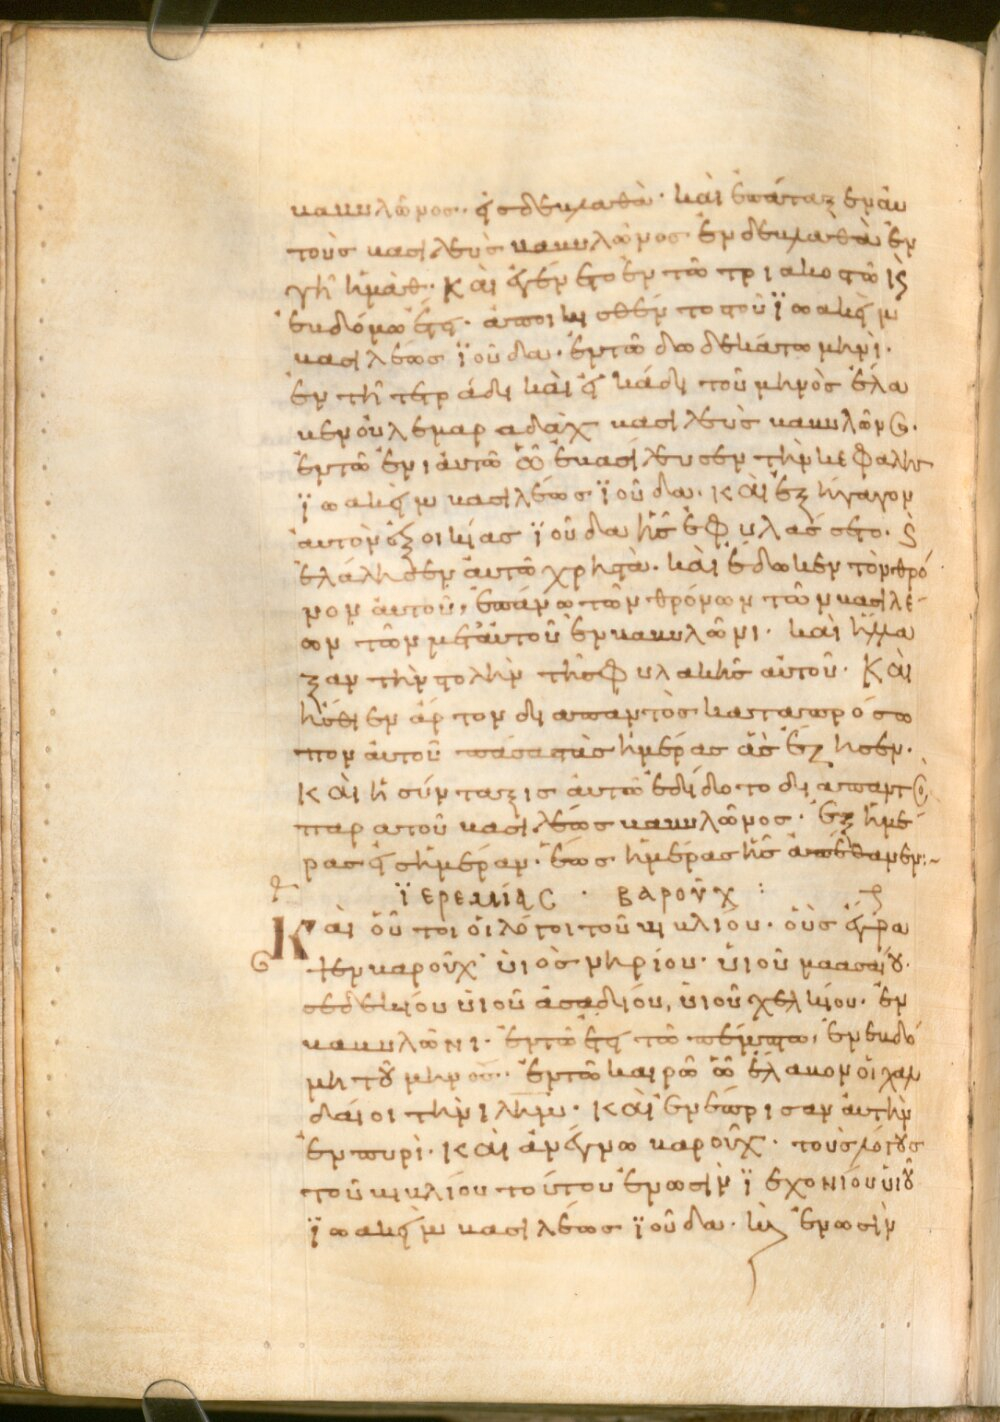 βαβυλῶνος· εἰς δεβλαθὰ· καὶ ἐπάταξεν αὐ
τοὺς βασιλεὺς βαβυλῶνος ἐν δεβλαθὰ ἐν
γῆ ἡμὰθ· Καὶ ἐγένετο ἐν τῶ τριακοστῶ ϗ
ἑβδόμω ἔτει· ἀποικισθέντος τοῦ ϊωακεὶμ
βασιλέως ϊούδα· ἐν τῶ δωδεκάτω μηνὶ·
ἐν τῆ τετράδι καὶ εἰκάδι τοῦ μηνὸς ἔλα
βεν οὐλεμαραδὰχ βασιλεὺς βαβυλῶνος·
ἐν τῶ ἐνιαυτῶ ὧ ἐβασίλευσεν τὴν κεφαλὴν
ϊωακεὶμ βασιλέως ϊούδα· καὶ ἐξήγαγον
αὐτὸν ἐξ οἰκίας ϊούδα ἧς ἐφυλάσσετο· ϗ
ἐλάλησεν αὐτῶ χρηστὰ· καὶ ἔδωκεν τὸν θρό
νον αὐτοῦ, ἐπάνω τῶν θρόνων τῶν βασιλέ
ων τῶν μετ' αὐτοῦ ἐν βαβυλῶνι· καὶ ἤλλα
ξαν τὴν στολὴν τῆς φυλακῆς αὐτοῦ· Καὶ
ἤσθιεν ἄρτον διαπαντὸς καταπρόσω
πον αὐτοῦ πάσας τὰς ἡμέρας ἃς ἔζησεν·
καὶ ἡ σύνταξις αὐτῶ ἐδίδοτο διαπαντὸς,
παρατοῦ βασιλέως βαβυλῶνος· ἐξ ἡμέ
ρας εἰς ἡμέραν· ἕως ἡμέρας ἧς ἀπέθανεν:~
ϊερεμίας · βαροῦχ :
Καὶ οὗτοι οἱ λόγοι τοῦ βιβλίου· οὓς ἔγρα
ψεν βαροῦχ υἱὸς νηρίου· υἱοῦ μαασαίου·
σεδεκίου υἱοῦ ἀσαδίου, υἱοῦ χελκίου· ἐν
βαβυλῶνι· ἐν τῶ ἔτει τῶ πέμπτω, ἐν ἑβδό
μη τοῦ μηνὸς· ἐν τῶ καιρῶ ὧ ἔλαβον οἱ χαλ
δαίοι τὴν ιλημ· καὶ ἐνέπρισαν αὐτὴν
ἐν πυρὶ· καὶ ἀνέγνω βαροῦχ· τοὺς λόγους
τοῦ βιβλίου τούτου ἐν ὠσὶν ϊεχονίου υἱοῦ
ϊωακεὶμ βασιλέως ϊούδα· ϗ ἐν ὠσὶν